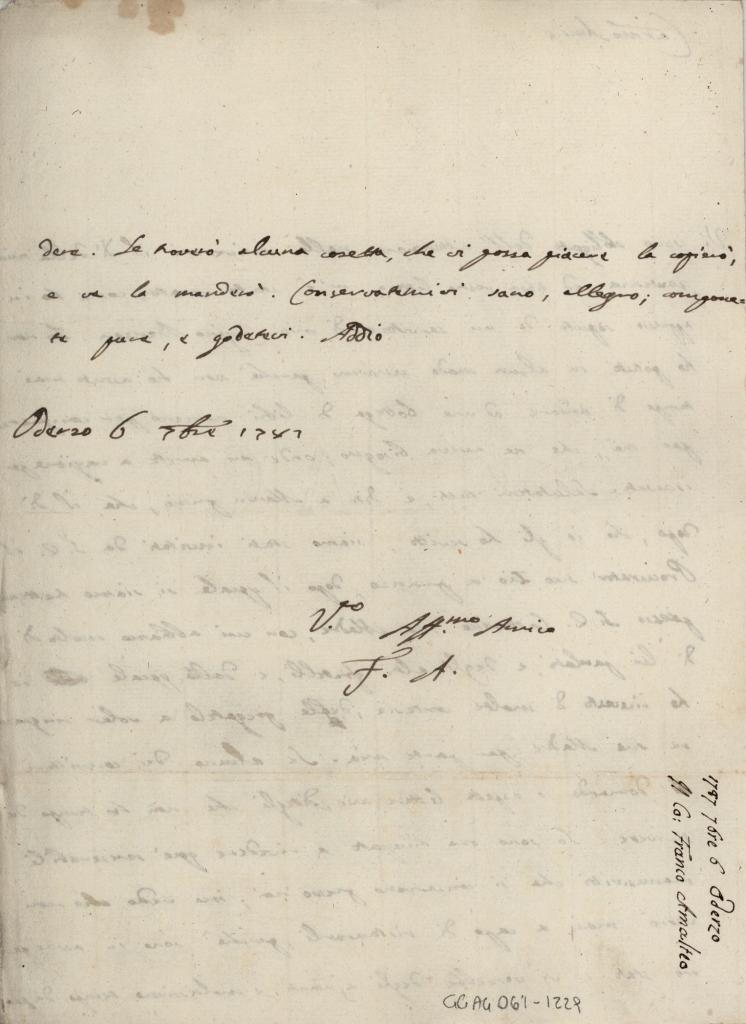 dere. Se troverò alcuna cosetta, che vi possa piacere la copierò,
e ve la manderò. Conservatemivi sano, allegro; compone=
te pure, e godetevi. Addio
Oderzo 6 7bre 1787
V.ro Aff.mo Amico
F. A.
1787 7bre 6 Oderzo
Co: Franco Amalteo
GCAG D61-1229